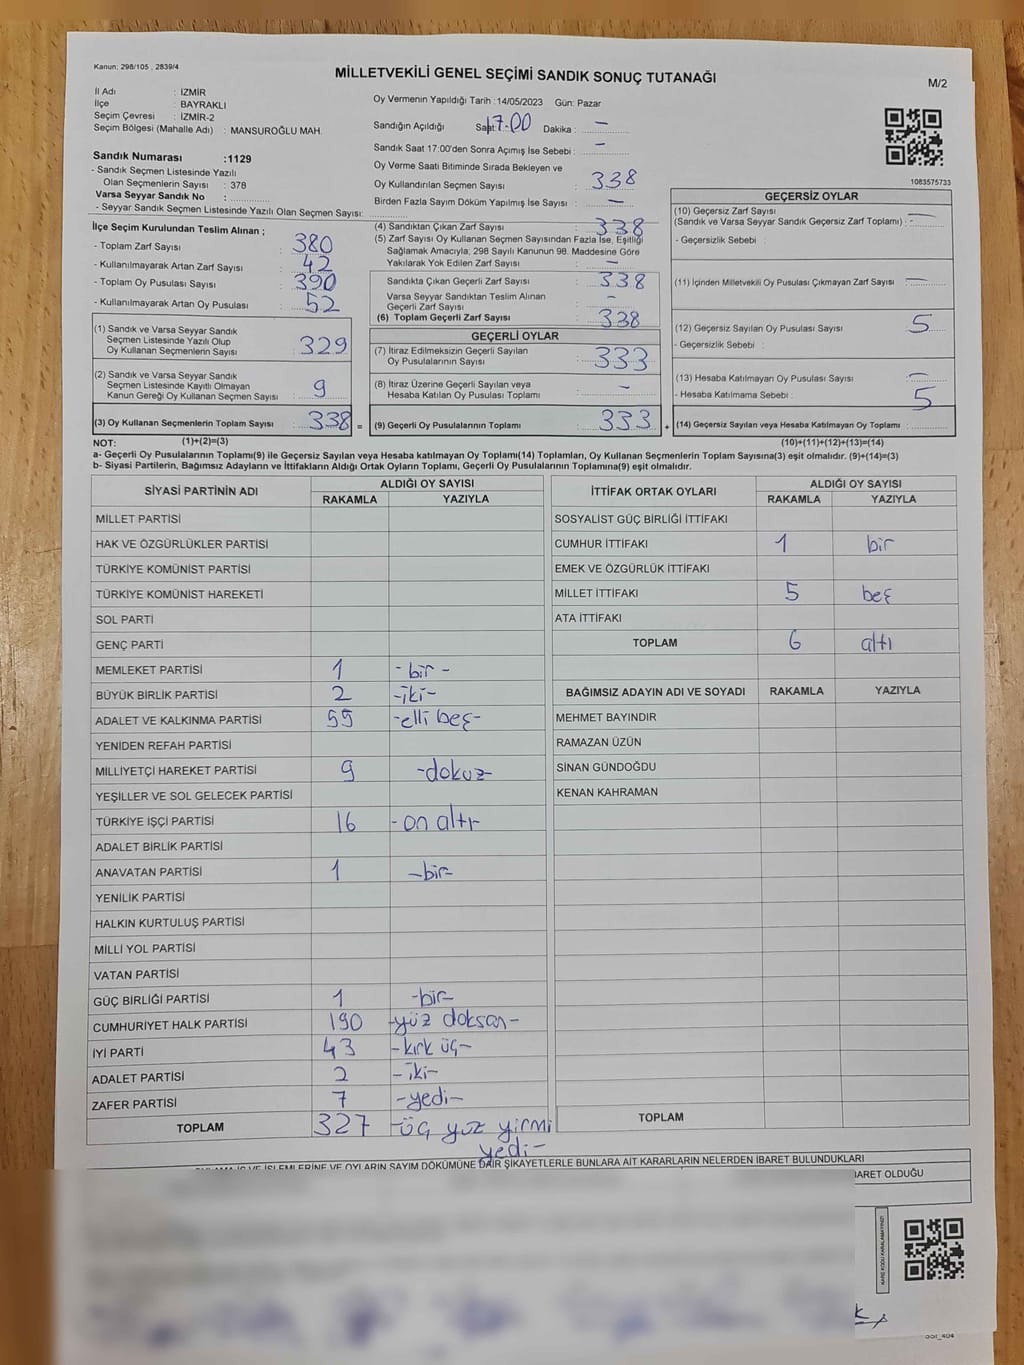 Kanun; 298/105 , 2839/4
MİLLETVEKİLİ GENEL SEÇİMİ SANDIK SONUÇ TUTANAĞI
M/2
İl Adı : İZMİR
İlçe : BAYRAKLI
Seçim Çevresi : İZMİR-2
Seçim Bölgesi (Mahalle Adı) : MANSUROĞLU MAH.
Oy Vermenin Yapıldığı Tarih :14/05/2023 Gün: Pazar
Sandığın Açıldığı Saat 17.00 Dakika : —
Sandık Saat 17:00'den Sonra Açımış İse Sebebi : —
Oy Verme Saati Bitiminde Sırada Bekleyen ve
Oy Kullandırılan Seçmen Sayısı : 338
Birden Fazla Sayım Döküm Yapılmış İse Sayısı : —
1083575733
Sandık Numarası :1129
- Sandık Seçmen Listesinde Yazılı
Olan Seçmenlerin Sayısı : 378
Varsa Seyyar Sandık No :
- Seyyar Sandık Seçmen Listesinde Yazılı Olan Seçmen Sayısı:
İlçe Seçim Kurulundan Teslim Alınan ;
- Toplam Zarf Sayısı : 380
- Kullanılmayarak Artan Zarf Sayısı : 42
- Toplam Oy Pusulası Sayısı : 390
- Kullanılmayarak Artan Oy Pusulası : 52
(1) Sandık ve Varsa Seyyar Sandık
Seçmen Listesinde Yazılı Olup
Oy Kullanan Seçmenlerin Sayısı : 329
(2) Sandık ve Varsa Seyyar Sandık
Seçmen Listesinde Kayıtlı Olmayan
Kanun Gereği Oy Kullanan Seçmen Sayısı : 9
(3) Oy Kullanan Seçmenlerin Toplam Sayısı : 338 =
(4) Sandıktan Çıkan Zarf Sayısı : 338
(5) Zarf Sayısı Oy Kullanan Seçmen Sayısından Fazla İse, Eşitliği
Sağlamak Amacıyla; 298 Sayılı Kanunun 98. Maddesine Göre
Yakılarak Yok Edilen Zarf Sayısı : —
Sandıkta Çıkan Geçerli Zarf Sayısı : 338
Varsa Seyyar Sandıktan Teslim Alınan
Geçerli Zarf Sayısı : —
(6) Toplam Geçerli Zarf Sayısı : 338
GEÇERLİ OYLAR
(7) İtiraz Edilmeksizin Geçerli Sayılan
Oy Pusulalarının Sayısı : 333
(8) İtiraz Üzerine Geçerli Sayılan veya
Hesaba Katılan Oy Pusulası Toplamı : —
(9) Geçerli Oy Pusulalarının Toplamı : 333 +
GEÇERSİZ OYLAR
(10) Geçersiz Zarf Sayısı —
(Sandık ve Varsa Seyyar Sandık Geçersiz Zarf Toplamı) :
- Geçersizlik Sebebi :
(11) İçinden Milletvekili Oy Pusulası Çıkmayan Zarf Sayısı : —
(12) Geçersiz Sayılan Oy Pusulası Sayısı : 5
- Geçersizlik Sebebi :
(13) Hesaba Katılmayan Oy Pusulası Sayısı : —
- Hesaba Katılmama Sebebi : 5
(14) Geçersiz Sayılan veya Hesaba Katılmayan Oy Toplamı :
NOT: (1)+(2)=(3)
(10)+(11)+(12)+(13)=(14)
a- Geçerli Oy Pusulalarının Toplamı(9) ile Geçersiz Sayılan veya Hesaba katılmayan Oy Toplamı(14) Toplamları, Oy Kullanan Seçmenlerin Toplam Sayısına(3) eşit olmalıdır. (9)+(14)=(3)
b- Siyasi Partilerin, Bağımsız Adayların ve İttifakların Aldığı Ortak Oyların Toplamı, Geçerli Oy Pusulalarının Toplamına(9) eşit olmalıdır.
SİYASİ PARTİNİN ADI ALDIĞI OY SAYISI
RAKAMLA YAZIYLA
MİLLET PARTİSİ
HAK VE ÖZGÜRLÜKLER PARTİSİ
TÜRKİYE KOMÜNİST PARTİSİ
TÜRKİYE KOMÜNİST HAREKETİ
SOL PARTİ
GENÇ PARTİ
MEMLEKET PARTİSİ 1 -bir-
BÜYÜK BİRLİK PARTİSİ 2 -iki-
ADALET VE KALKINMA PARTİSİ 55 -elli beş-
YENİDEN REFAH PARTİSİ
MİLLİYETÇİ HAREKET PARTİSİ 9 -dokuz-
YEŞİLLER VE SOL GELECEK PARTİSİ
TÜRKİYE İŞÇİ PARTİSİ 16 -on altı-
ADALET BİRLİK PARTİSİ
ANAVATAN PARTİSİ 1 -bir-
YENİLİK PARTİSİ
HALKIN KURTULUŞ PARTİSİ
MİLLİ YOL PARTİSİ
VATAN PARTİSİ
GÜÇ BİRLİĞİ PARTİSİ 1 -bir-
CUMHURİYET HALK PARTİSİ 190 -yüz doksan-
İYİ PARTİ 43 -kırk üç-
ADALET PARTİSİ 2 -iki-
ZAFER PARTİSİ 7 -yedi-
TOPLAM 327 -üç yüz yirmi
yedi-
İTTİFAK ORTAK OYLARI ALDIĞI OY SAYISI
RAKAMLA YAZIYLA
SOSYALİST GÜÇ BİRLİĞİ İTTİFAKI
CUMHUR İTTİFAKI 1 bir
EMEK VE ÖZGÜRLÜK İTTİFAKI
MİLLET İTTİFAKI 5 beş
ATA İTTİFAKI
TOPLAM 6 altı
BAĞIMSIZ ADAYIN ADI VE SOYADI RAKAMLA YAZIYLA
MEHMET BAYINDIR
RAMAZAN ÜZÜN
SİNAN GÜNDOĞDU
KENAN KAHRAMAN
TOPLAM
İŞLEMLERİNE VE OYLARIN SAYIM DÖKÜMÜNE DAİR ŞİKAYETLERLE BUNLARA AİT KARARLARIN NELERDEN İBARET BULUNDUKLARI
BARET OLDUĞU
KARE KODU KARALAMAYINIZ!